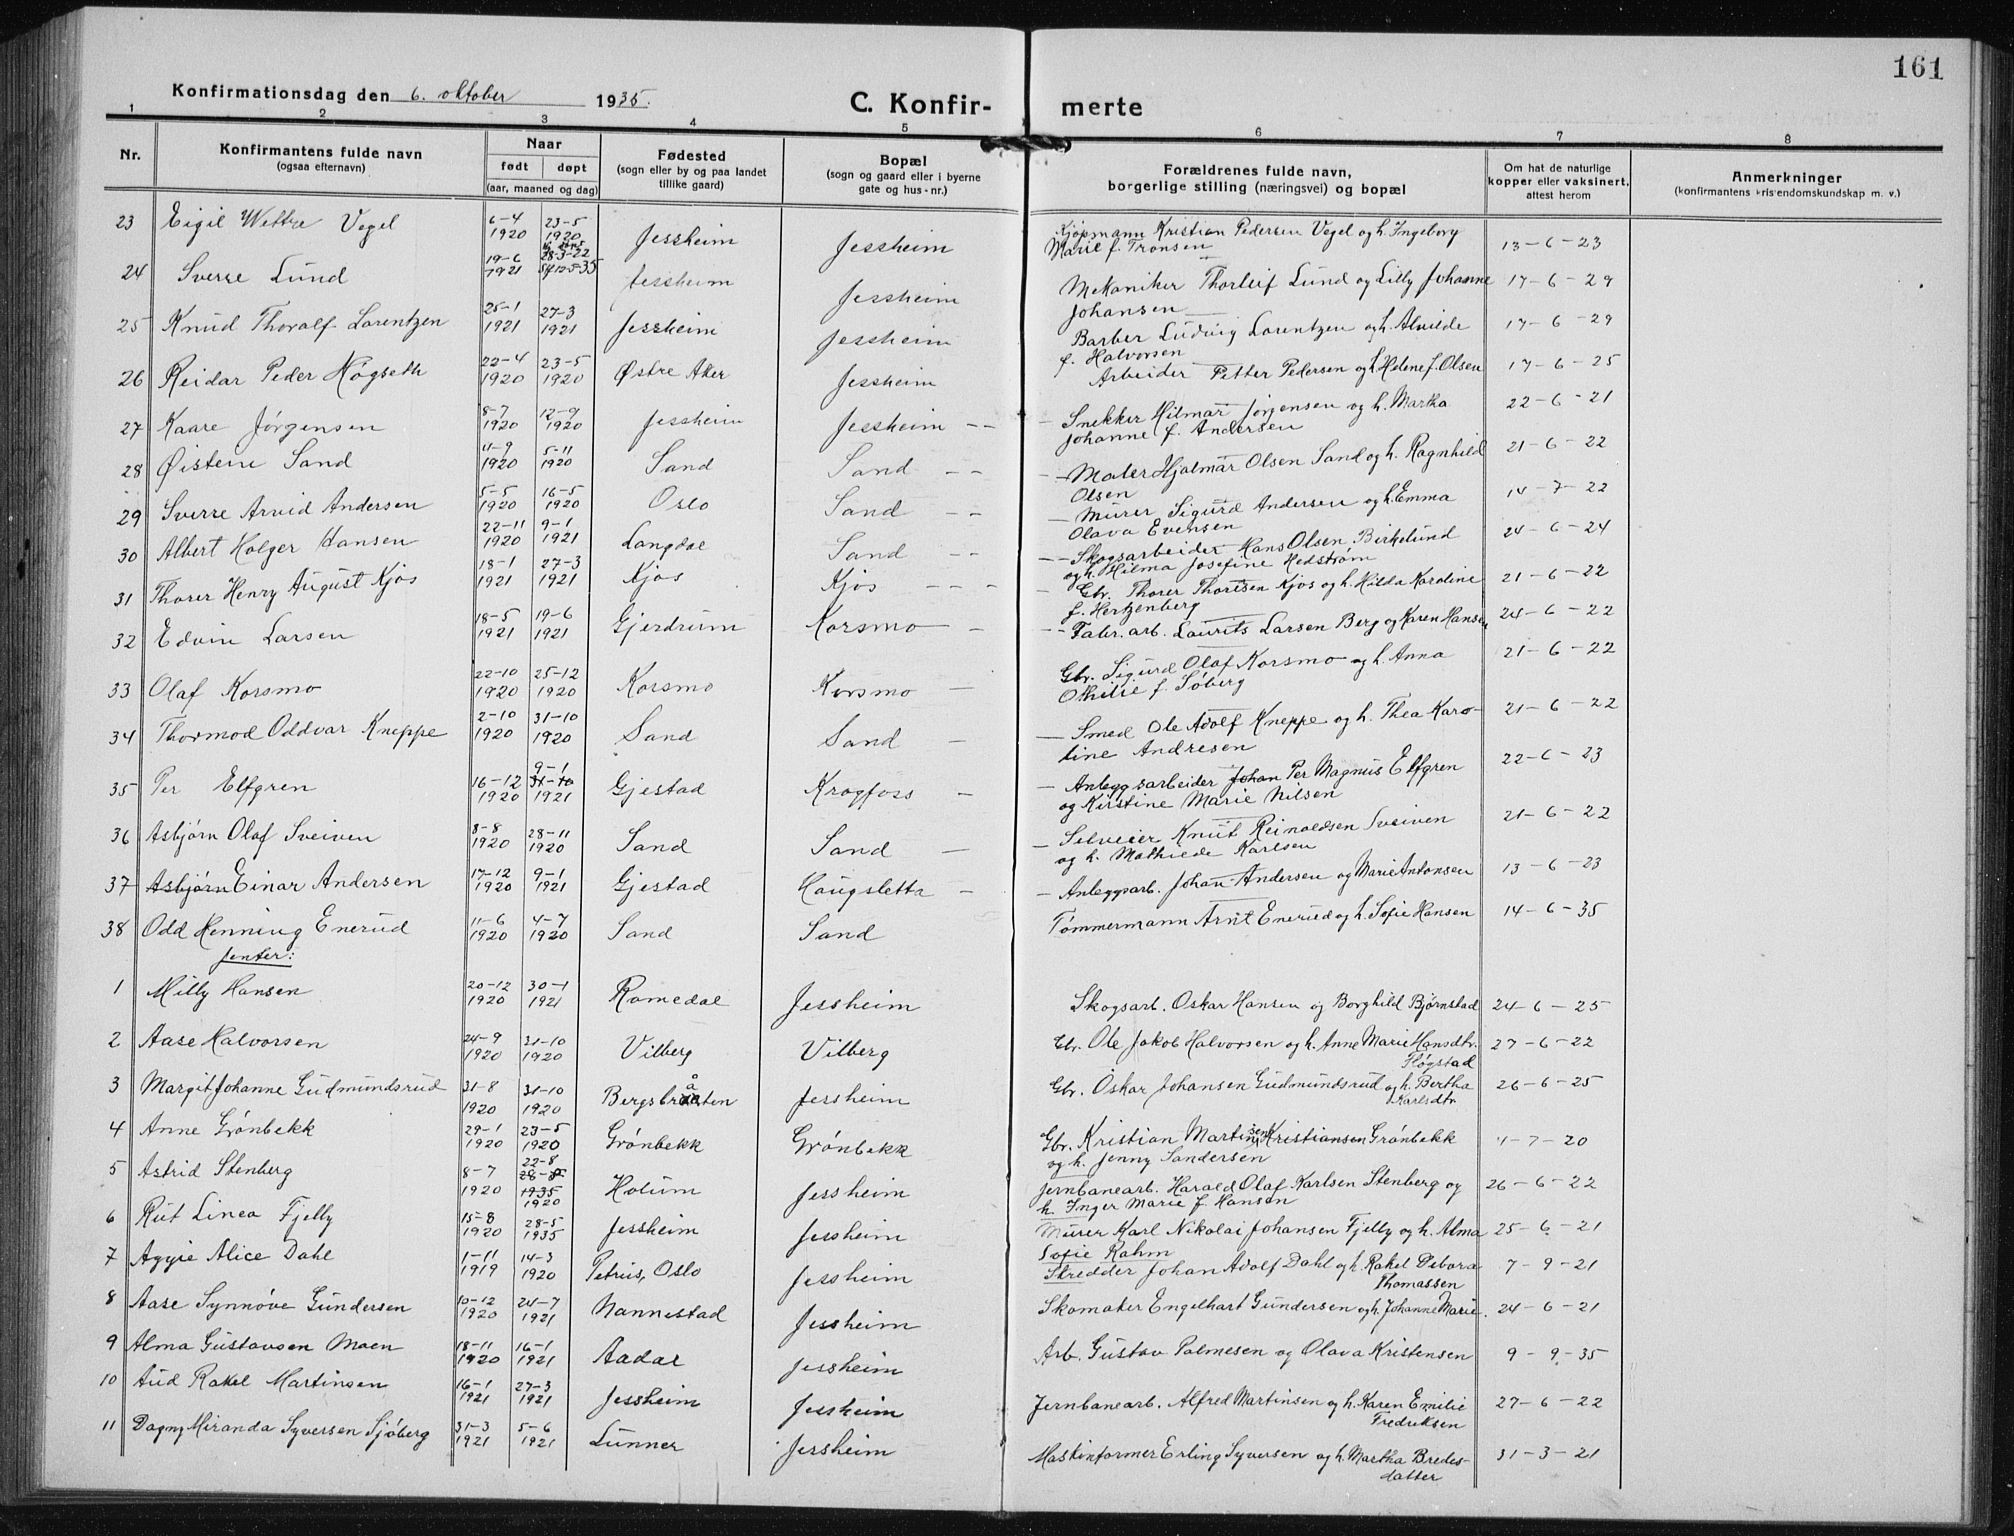 161
Konfirmationsdag den 6. oktober 1935.
C. Konfir- merte
1 2 3 4 5 6 7 8
Nr. Konfirmantens fulde navn (ogsaa efternavn) Naar født døpt (aar, maaned og dag) Fødested (sogn eller by og paa landet tillike gaard) Bopæl (sogn og gaard eller i byerne gate og hus-nr.) Forældrenes fulde navn, borgerlige stilling (næringsvei) og bopæl Om hat de naturlige kopper eller vaksinert, attest herom Anmerkninger (konfirmantens kristendomskundskap m. v.)
23 Eigil Wettre Vegel 6-4 1920 23-5 1920 Jessheim Jessheim Kjøpmann Kristian Pedersen Vegel og h. Ingeborg Marie f. Tronsen 13-6-23
24 Sverre Lund 19-6 1921 28-3-22 12-5-35 Jessheim Jessheim Mekaniker Thorleif Lund og Lilly Johanne Johansen 17-6-29
25 Knud Thoralf Lorentzen 25-1 1921 27-3 1921 Jessheim Jessheim Barber Ludvig Lorentzen og h. Alvilde f. Halvorsen 17-6-29
26 Reidar Peder Høgseth 22-4 1920 23-5 1920 Østre Aker Jessheim Arbeider Petter Pedersen og h. Helene f. Olsen 17-6-25
27 Kaare Jørgensen 8-7 1920 12-9 1920 Jessheim Jessheim -- - Snekker Hilmar Jørgensen og h. Martha Johanne f. Andersen 22-6-21
28 Øistein Sand 11-9 1920 5-11 1920 Sand Sand -- -- Maler Hjalmar Olsen Sand og h. Ragnhild Olsen 21-6-22
29 Sverre Arvid Andersen 5-5 1920 16-5 1920 Oslo Sand -- - Murer Sigurd Andersen og h. Emma Olava Evensen 14-7-22
30 Albert Holger Hansen 22-11 1920 9-1 1921 Langdal Sand -- -- Skogsarbeider Hans Olsen Birkelund og h. Hilma Josefine Hedstrøm 24-6-24
31 Thorer Henry August Kjos 18-1 1921 27-3 1921 Kjos Kjos --- - Gbr. Thorer Thoresen Kjos og h. Hilda Karoline f. Hertzenberg 21-6-22
32 Edvin Larsen 18-5 1921 19-6 1921 Gjerdrum Korsmo - -- Fabr. arb. Laurits Larsen Berg og Karen Hansen 24-6-22
33 Olaf Korsmo 22-10 1920 25-12 1920 Korsmo Korsmo - Gbr. Sigurd Olaf Korsmo og h. Anna Othilie f. Søberg 21-6-22
34 Thormod Oddvar Kneppe 2-10 1920 31-10 1920 Sand Sand - - Smed Ole Adolf Kneppe og h. Thea Karo- line Andresen 21-6-22
35 Per Elfgren 16-12 1920 9-1 31-10 1921 Gjestad Krogfoss - - Anleggsarbeider Johan Per Magnus Elfgren og Kirstine Marie Nilsen 22-6-23
36 Asbjørn Olaf Sveiven 8-8 1920 28-11 1920 Sand Sand - - Selveier Knut Reinoldsen Sveiven og h. Mathilde Karlsen 21-6-22
37 Asbjørn Einar Andersen 17-12 1920 9-1 1921 Gjestad Haugsletta - - Anleggsarb. Johan Andersen og Marie Antonsen 13-6-23
38 Odd Henning Enerud 11-6 1920 4-7 1920 Sand Sand Tømmermann Arnt Enerud og h. Sofie Hansen 14-6-35
Jenter:
1 Milly Hansen 20-12 1920 30-1 1921 Romedal Jessheim Skogsarb. Oskar Hansen og Borghild Bjørnstad 24-6-25
2 Aase Halvorsen 24-9 1920 31-10 1920 Vilberg Vilberg Gbr. Ole Jakob Halvorsen og h. Anne Marie Hansdtr. Fløgstad 27-6-22
3 Margit Johanne Gudmundsrud 31-8 1920 31-10 1920 Bergsbråten Jessheim Gbr. Oskar Johansen Gudmundsrud og h. Bertha Karlsdtr 26-6-25
4 Anne Grønbekk 29-1 1920 23-5 1920 Grønbekk Grønbekk Gbr. Kristian Martinsen Kristiansen Grønbekk og h. Jenny Sandersen 4-7-20
5 Astrid Stenberg 8-7 1920 22-8 28-8 1935 1920 Holum Jessheim Jernbanearb. Harald Olaf Karlsen Stenberg og h. Inger Marie f. Hansen 26-6-22
6 Rut Linea Fjelly 15-8 1920 28-5 1935 Jessheim Jessheim Murer Karl Nikolai Johansen Fjelly og h. Alma Sofie Rahm 25-6-21
7 Aggie Alice Dahl 1-11 1919 14-3 1920 Petrus, Oslo Jessheim Skredder Johan Adolf Dahl og h. Rakel Debora Thomassen 7-9-21
8 Aase Synnøve Gundersen 10-12 1920 24-7 1921 Nannestad Jessheim Skomaker Engelhart Gundersen og h. Johanne Marie 24-6-21
9 Alma Gustavsen Moen 18-11 1920 16-1 1921 Aadal Jessheim Arb. Gustav Palmesen og Olava Kristensen 9-9-35
10 Aud Rakel Martinsen 16-1 1921 27-3 1921 Jessheim Jessheim Jernbanearb. Alfred Martinsen og h. Karen Emilie Fredriksen 27-6-22
11 Dagny Miranda Syversen Sjøberg 31-3 1921 5-6 1921 Lunner Jessheim Maskinformer Erling Syversen og h. Martha Bredes- datter 31-3-21